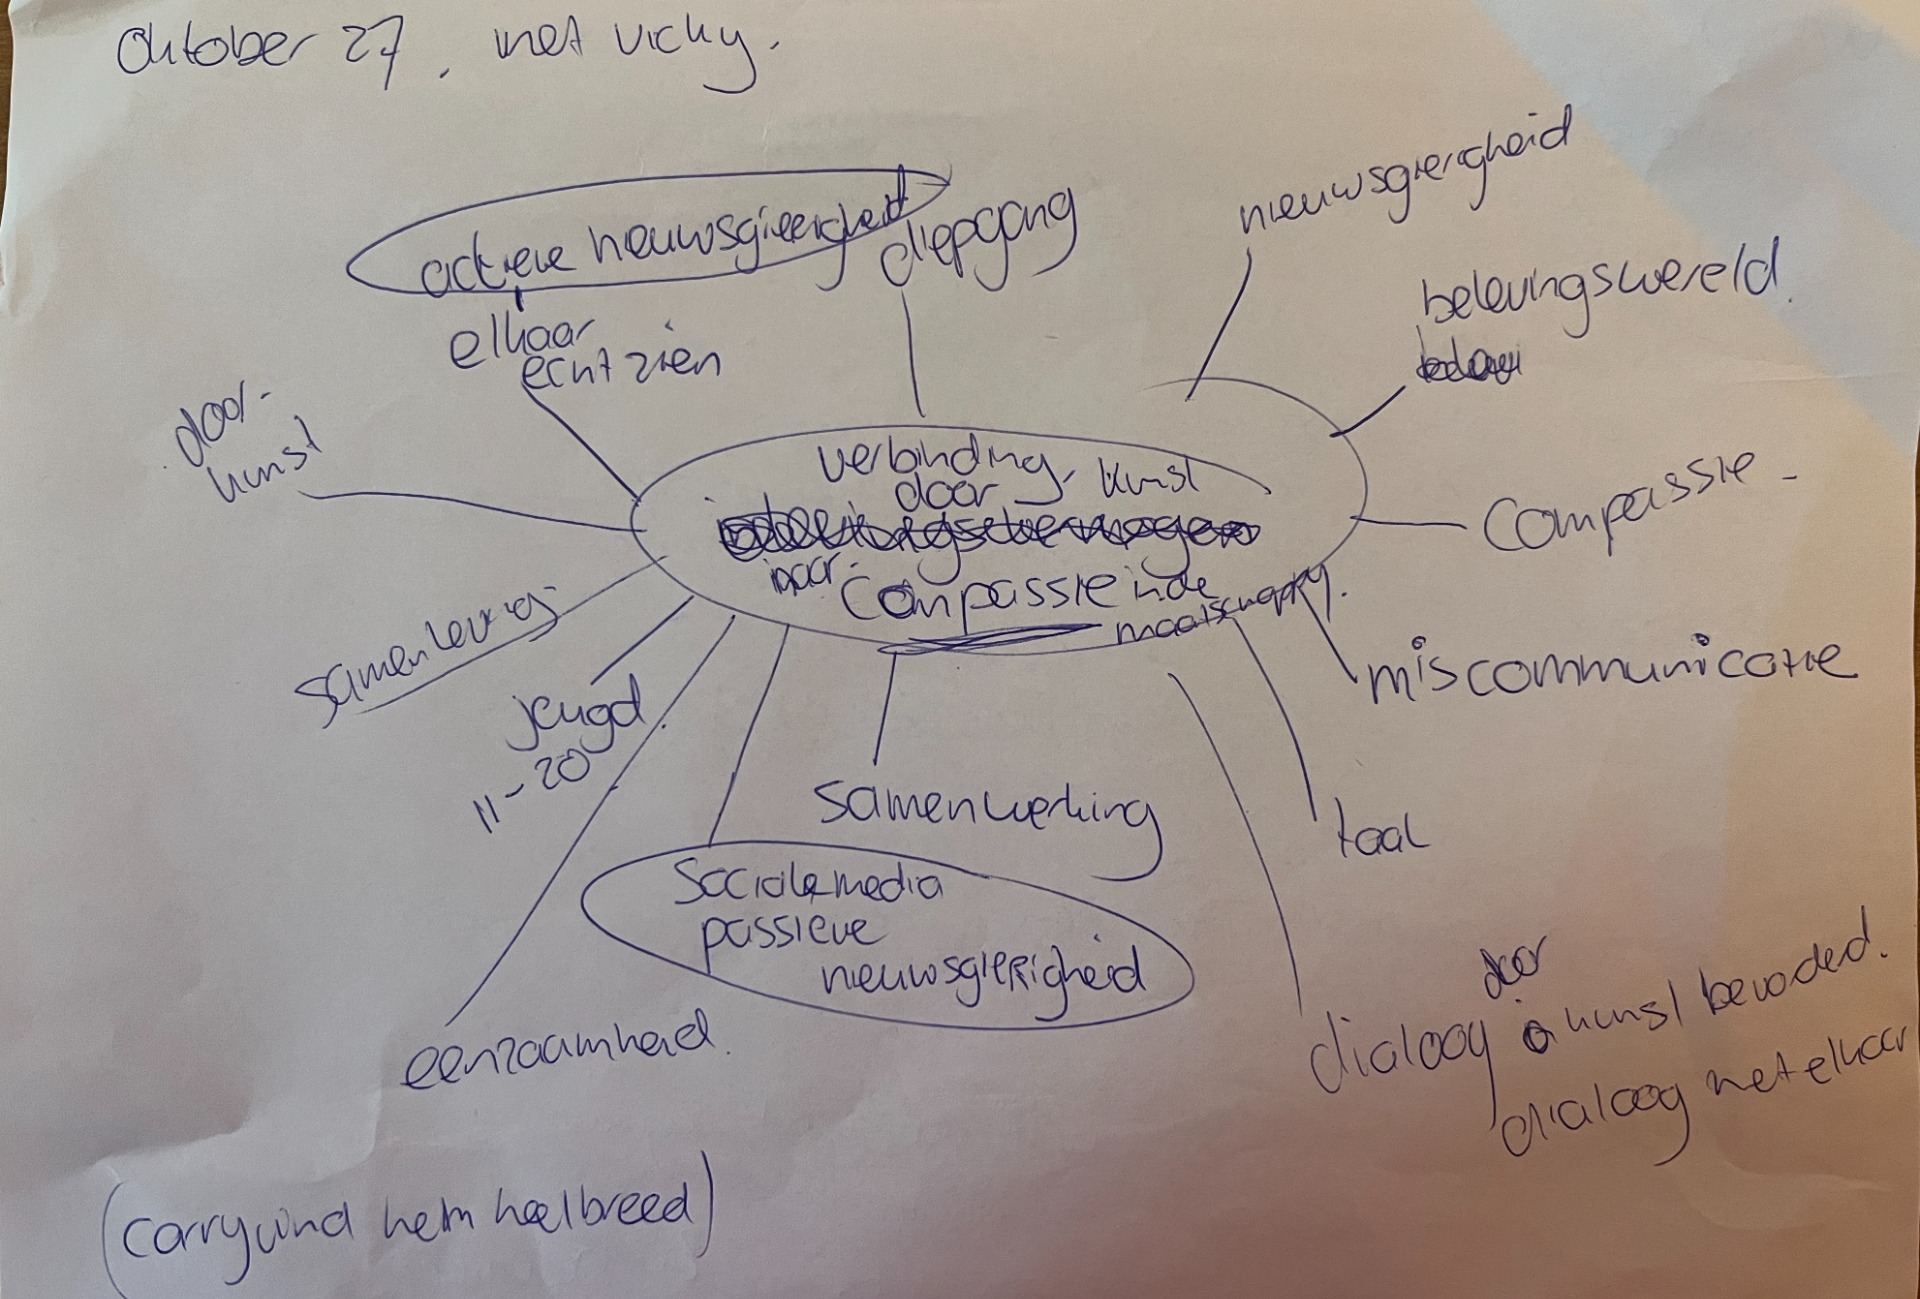 Oktober 27, met vicky.
nieuwsgierigheid
actieve nieuwsgierigheid
diepgang
belevingswereld.
elkaar
echt zien
door-
kunst
verbinding, kunst
door
naar
Compassie in de
maatschappij.
Compassie -
samenleving
miscommunicatie
jeugd.
11-20
samenwerking
taal
Sociale media
passieve
nieuwsgierigheid
door
dialoog kunst bevorderd.
eenzaamheid.
dialoog met elkaar
(carry vind hem heel breed)